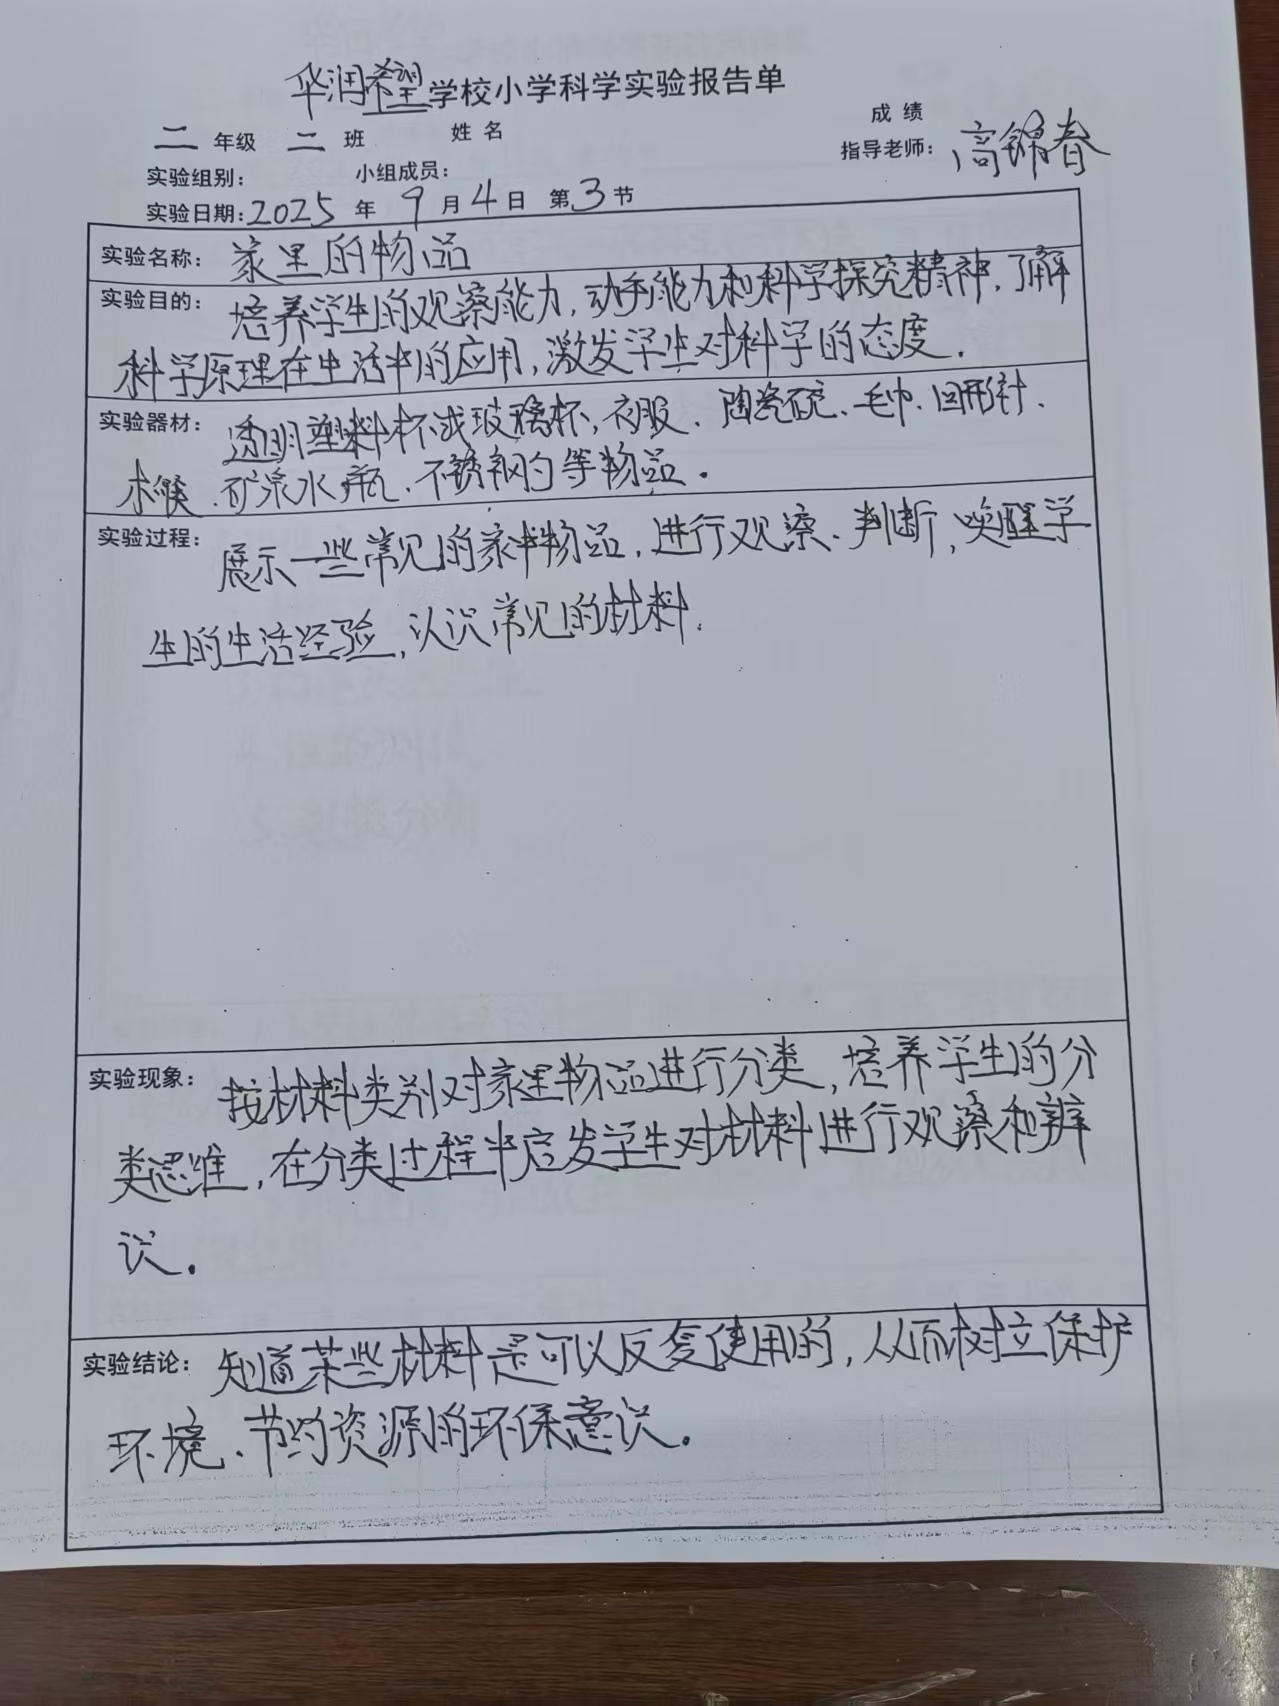 华润希望学校小学科学实验报告单
二 年级 二 班 姓 名 成 绩
实验组别: 小组成员: 指导老师: 高锦春
实验日期:2025 年 9 月 4 日 第 3 节
实验名称: 家里的物品
实验目的: 培养学生的观察能力,动手能力和科学探究精神,了解
科学原理在生活中的应用,激发学生对科学的态度.
实验器材: 透明塑料杯或玻璃杯,衣服、陶瓷碗、毛巾、回形针、
木筷、矿泉水瓶、不锈钢勺等物品.
实验过程: 展示一些常见的家中物品,进行观察、判断,唤醒学
生的生活经验,认识常见的材料.
实验现象: 按材料类别对家里物品进行分类,培养学生的分
类思维,在分类过程中启发学生对材料进行观察和辨
识.
实验结论: 知道某些材料是可以反复使用的,从而树立保护
环境、节约资源的环保意识.